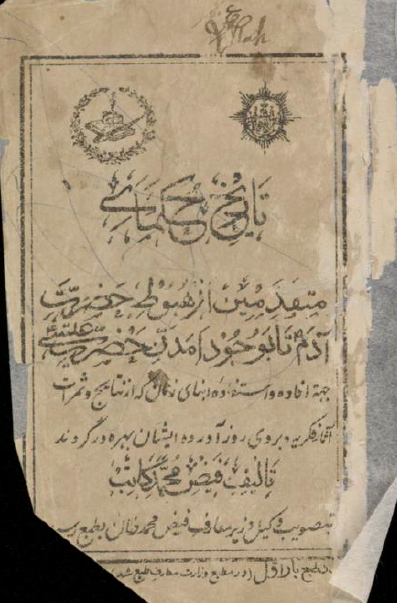 تاریخ حکمای
متقدمین از هبوط حضرت
آدم تا بوجود آمدن حضرت
جهة افاده و استفاده ابنای زمان که از نتایج و ثمرات
افکار فکریه و بروی روز آورده ایشان بهره ور گردند
تالیف فیض محمد کاتب
تصویب وکیل وزیر معارف فیض محمد خان بطبع
طبع بار اول (در مطبع وزارت معارف طبع شد)